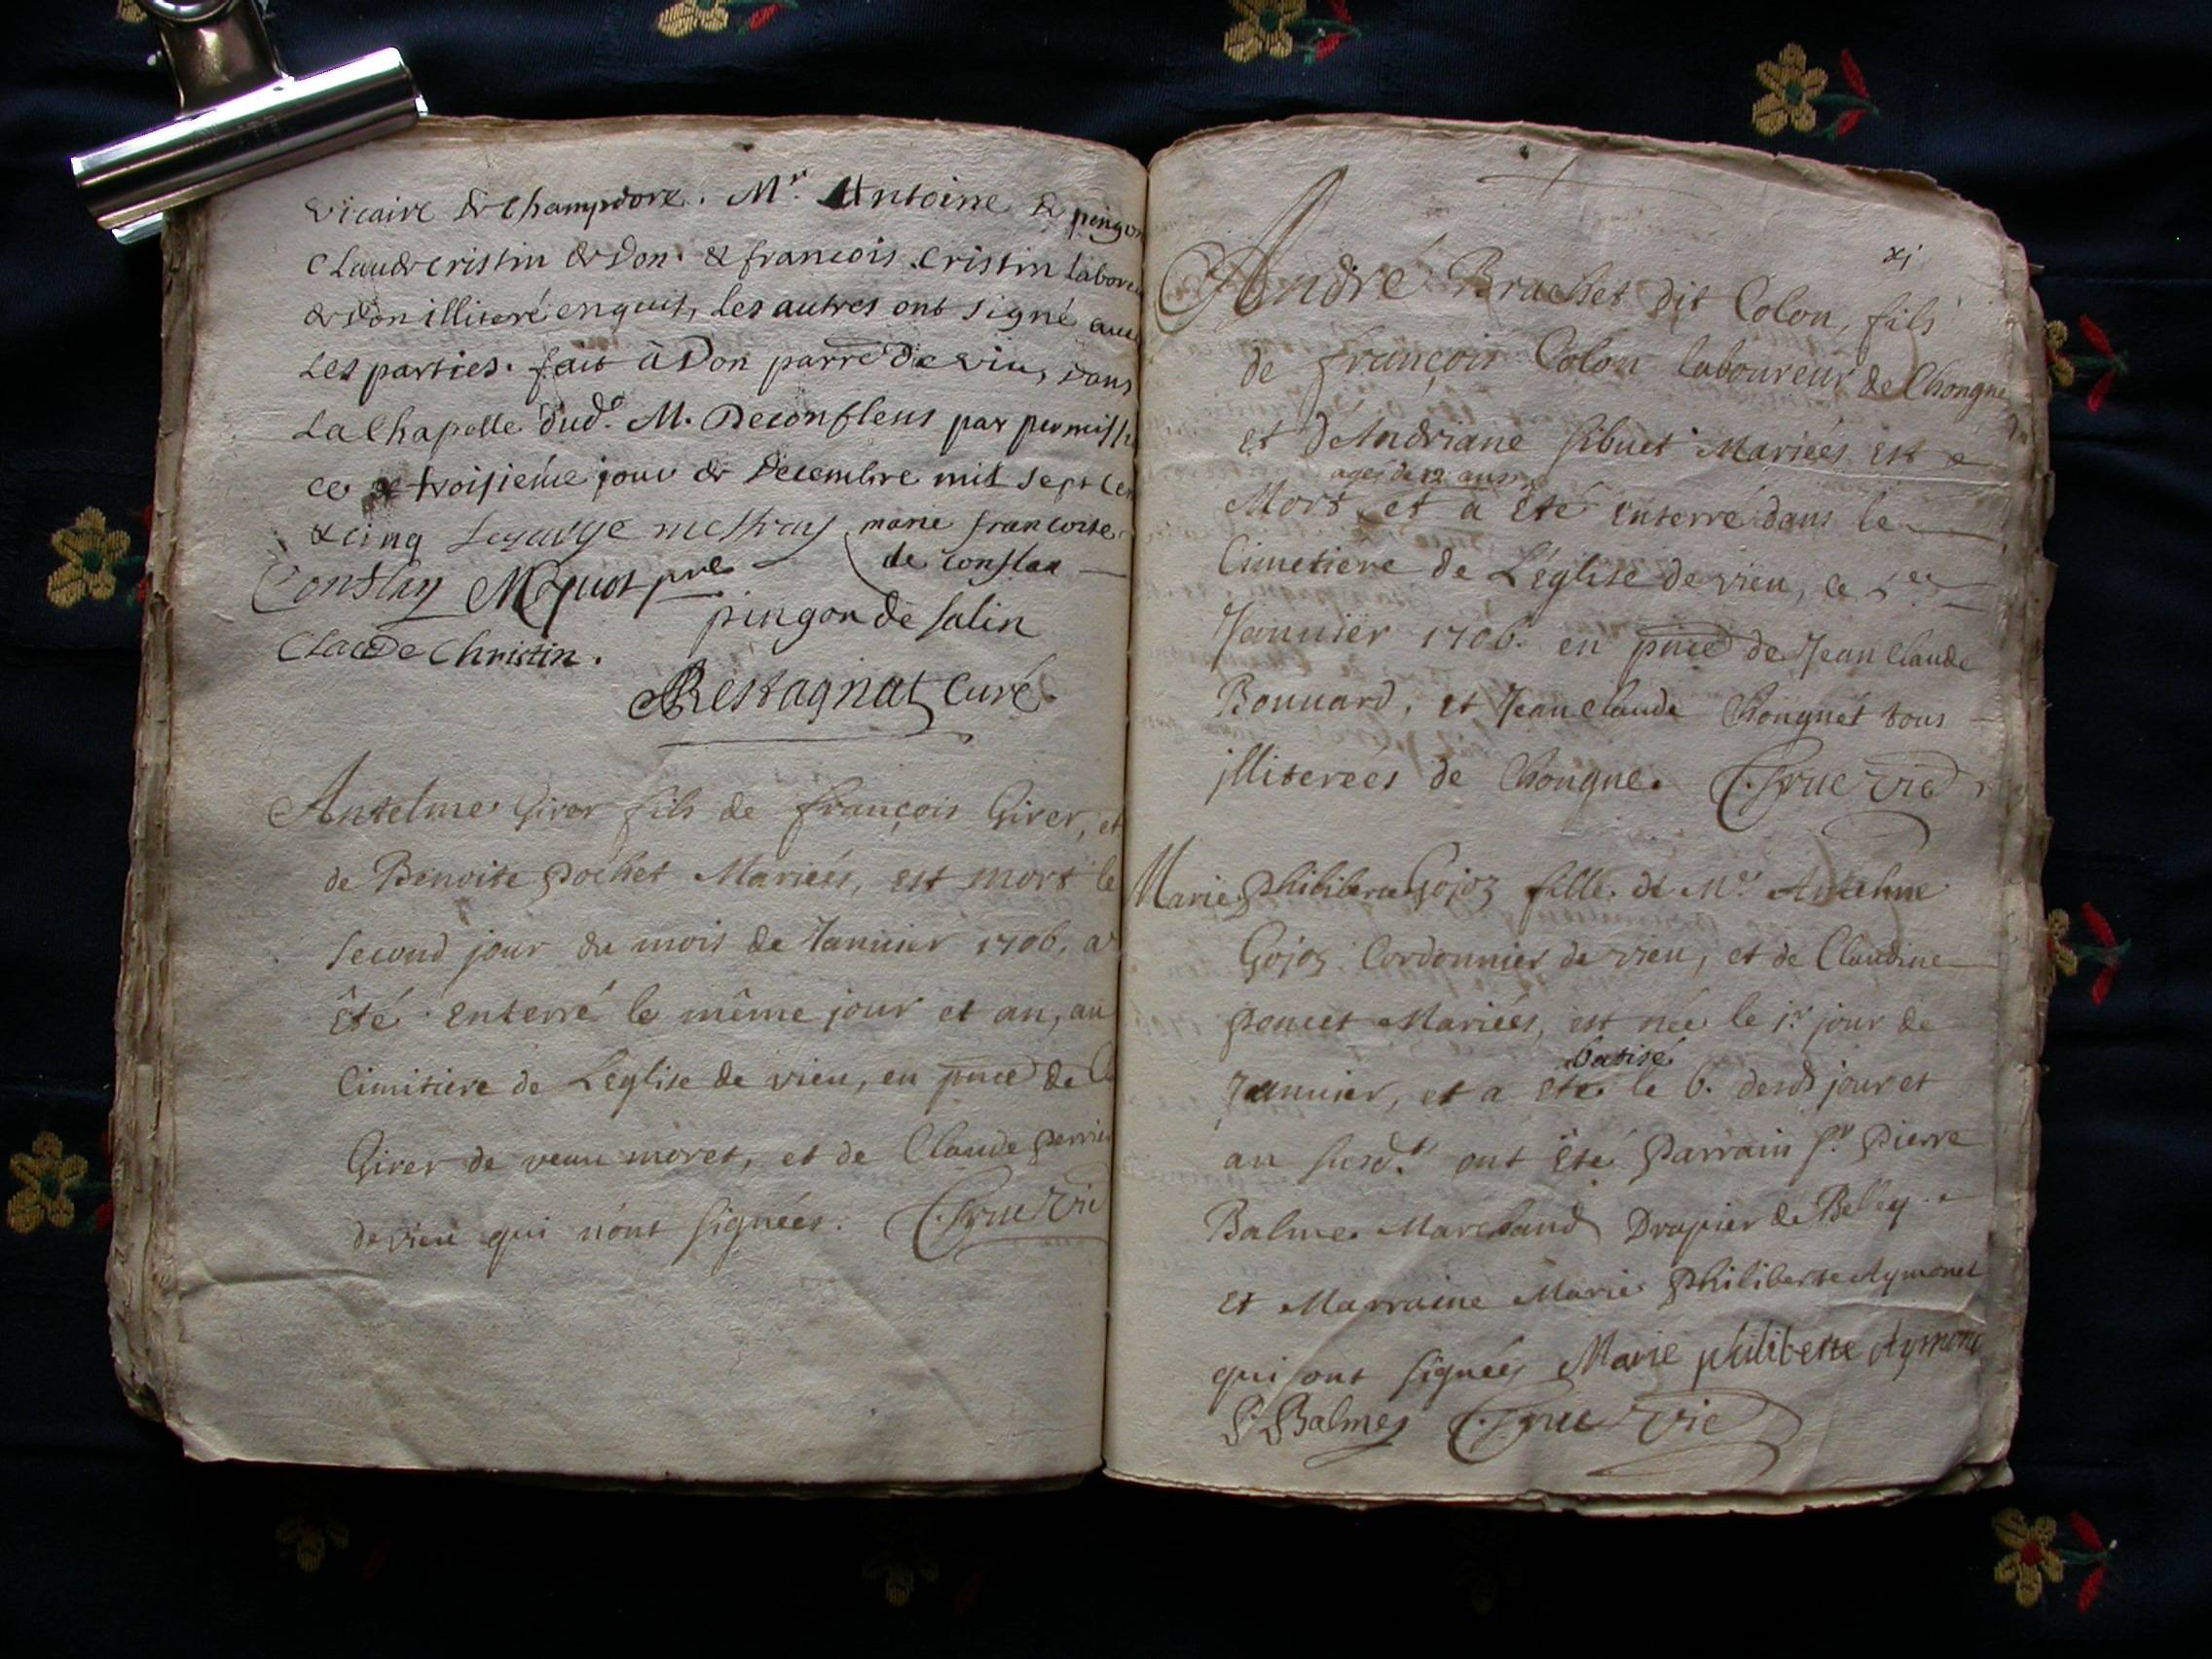 vicaire de Champdore. Mr. Antoine de pingon
Claude cristin de Don. & francois cristin laboreu
de Don illiteré enquis, Les autres ont signé auec
Les parties. fait à Don parre de vieu, dans
La Chapelle dud. M. Deconflens par permissi
ce troisieme jour de Decembre mil sept cen
& cinq marie francoise
de conflan
Conflan Moquot pre
pingon de salin
Claude Christin.
Restagnat Curé.
Antelme Girer fils de françois Girer, et
de Benoite Pochet Mariés, est mort le
second jour du mois de Januier 1706. a
été enterré le même jour et an, au
Cimitiere de Leglise de vieu, en pnce de
Girer de veau moret, et de Claude Perrier
de vieu qui n'ont signées.
xj
André Brachet dit Colon, fils
de françois Colon laboureur de Chongne
et d'Andriane Sibuet Mariés est
agé de 12 ans
Mort et a été enterré dans le
Cimetiere de L'eglise de vieu, ce 5e
Januier 1706. en pnce de Jean Claude
Bonnard, et Jean Claude Chongnet tous
jlliterées de Chongne.
Marie Philiberte Gojoz fille de Mr. Antelme
Gojoz Cordonnier de vieu, et de Claudine
Poncet Mariées, est née le 1r jour de
batisé
Januier, et a eté le 6. desd jour et
an susd.t ont Eté Parrain Sr. Pierre
Balme Marchand Drapier de Belley
Et Marraine Marie Philiberte Aymonet
qui ont signées Marie philiberte Aymone
P Balmes